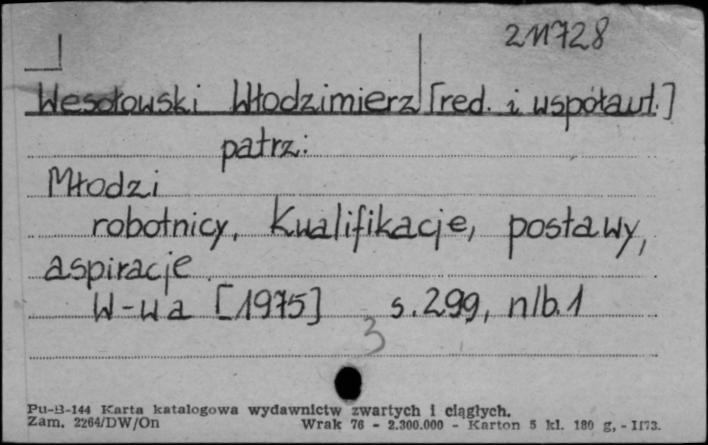 211728
Wesołowski Włodzimierz [red. i współaut.]
patrz:
Młodzi
robotnicy, Kwalifikacje, postawy,
aspiracje.
W-wa [1975] s. 299, nlb. 1
3
Pu-B-144 Karta katalogowa wydawnictw zwartych i ciągłych.
Zam. 2264/DW/On Wrak 76 - 2.300.000 - Karton 5 kl. 180 g, - II73.